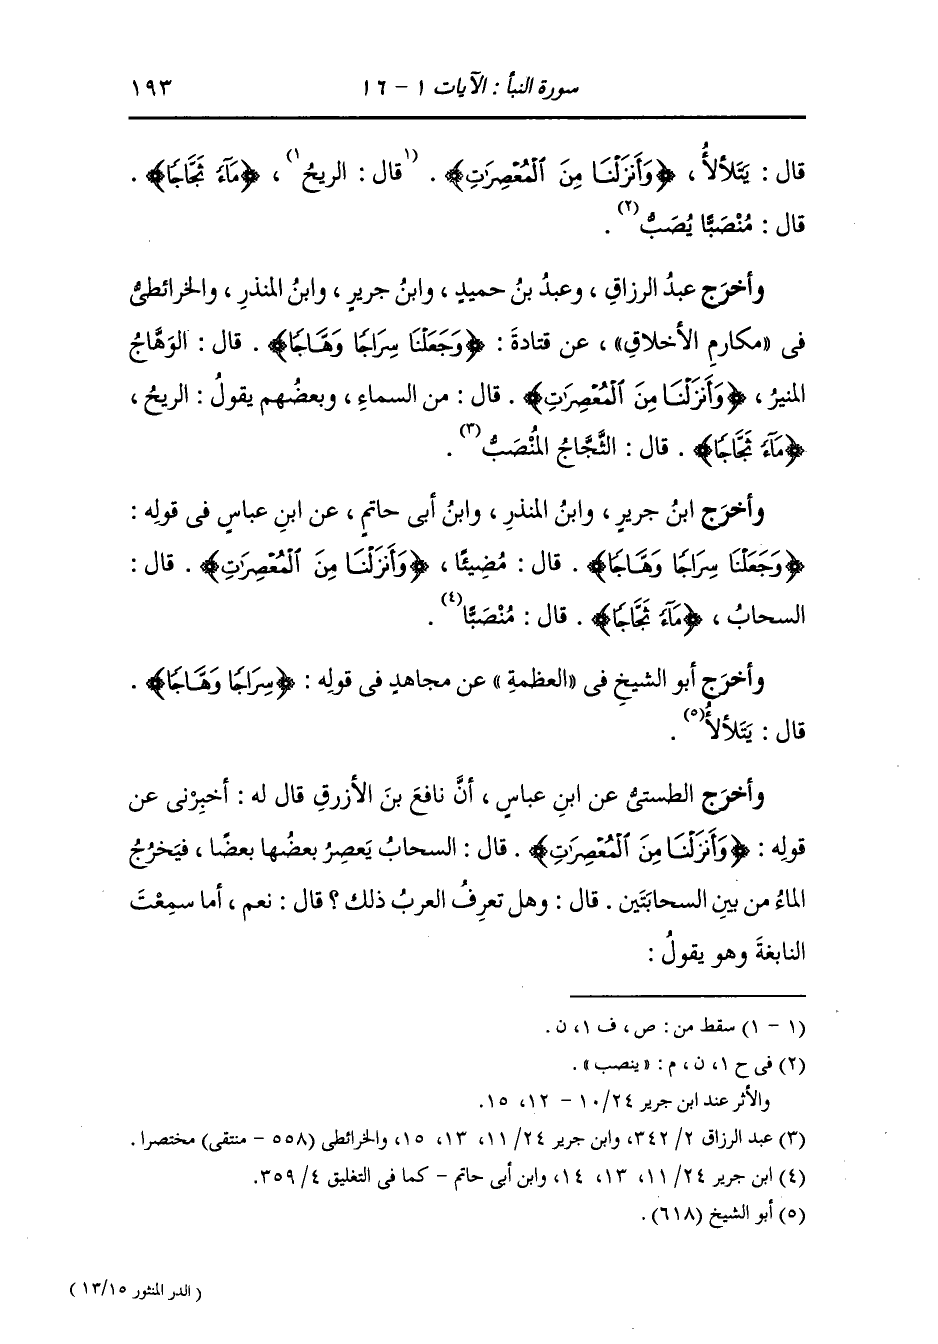 سورة النبأ : الآيات ١ - ١٦ ١٩٣
قال : يَتَلألأُ ، ﴿وَأَنزَلْنَا مِنَ ٱلْمُعْصِرَٰتِ﴾ . (١قال : الريحُ١) ، ﴿مَآءً ثَجَّاجًا﴾ .
قال : مُنْصَبًّا يُصَبُّ(٢) .
وأخرَج عبدُ الرزاقِ ، وعبدُ بنُ حميدٍ ، وابنُ جريرٍ ، وابنُ المنذرِ ، والخرائطىُّ
فى «مكارمِ الأخلاقِ» ، عن قتادةَ : ﴿وَجَعَلْنَا سِرَاجًا وَهَّاجًا﴾ . قال : الوَهَّاجُ
المنيرُ ، ﴿وَأَنزَلْنَا مِنَ ٱلْمُعْصِرَٰتِ﴾ . قال : من السماءِ ، وبعضُهم يقولُ : الريحُ ،
﴿مَآءً ثَجَّاجًا﴾ . قال : الثَّجَّاجُ المُنْصَبُّ(٣) .
وأخرَج ابنُ جريرٍ ، وابنُ المنذرِ ، وابنُ أبى حاتمٍ ، عن ابنِ عباسٍ فى قولِه :
﴿وَجَعَلْنَا سِرَاجًا وَهَّاجًا﴾ . قال : مُضِيئًا ، ﴿وَأَنزَلْنَا مِنَ ٱلْمُعْصِرَٰتِ﴾ . قال :
السحابُ ، ﴿مَآءً ثَجَّاجًا﴾ . قال : مُنْصَبًّا(٤) .
وأخرَج أبو الشيخِ فى «العظمةِ» عن مجاهدٍ فى قولِه : ﴿سِرَاجًا وَهَّاجًا﴾ .
قال : يَتَلألأُ(٥) .
وأخرَج الطستىُّ عن ابنِ عباسٍ ، أنَّ نافعَ بنَ الأزرقِ قال له : أخبِرْنى عن
قولِه : ﴿وَأَنزَلْنَا مِنَ ٱلْمُعْصِرَٰتِ﴾ . قال : السحابُ يَعصِرُ بعضُها بعضًا ، فيَخرُجُ
الماءُ من بينِ السحابَتَين . قال : وهل تعرِفُ العربُ ذلك ؟ قال : نعم ، أما سمِعْتَ
النابغةَ وهو يقولُ :
(١ - ١) سقط من : ص ، ف ١، ن .
(٢) فى ح ١، ن ، م : «ينصب» .
والأثر عند ابن جرير ٢٤/ ١٠ - ١٢، ١٥.
(٣) عبد الرزاق ٢/ ٣٤٢، وابن جرير ٢٤/ ١١، ١٣، ١٥، والخرائطى (٥٥٨ - منتقى) مختصرا .
(٤) ابن جرير ٢٤/ ١١، ١٣، ١٤، وابن أبى حاتم - كما فى التغليق ٤/ ٣٥٩.
(٥) أبو الشيخ (٦١٨) .
( الدر المنثور ١٣/١٥ )